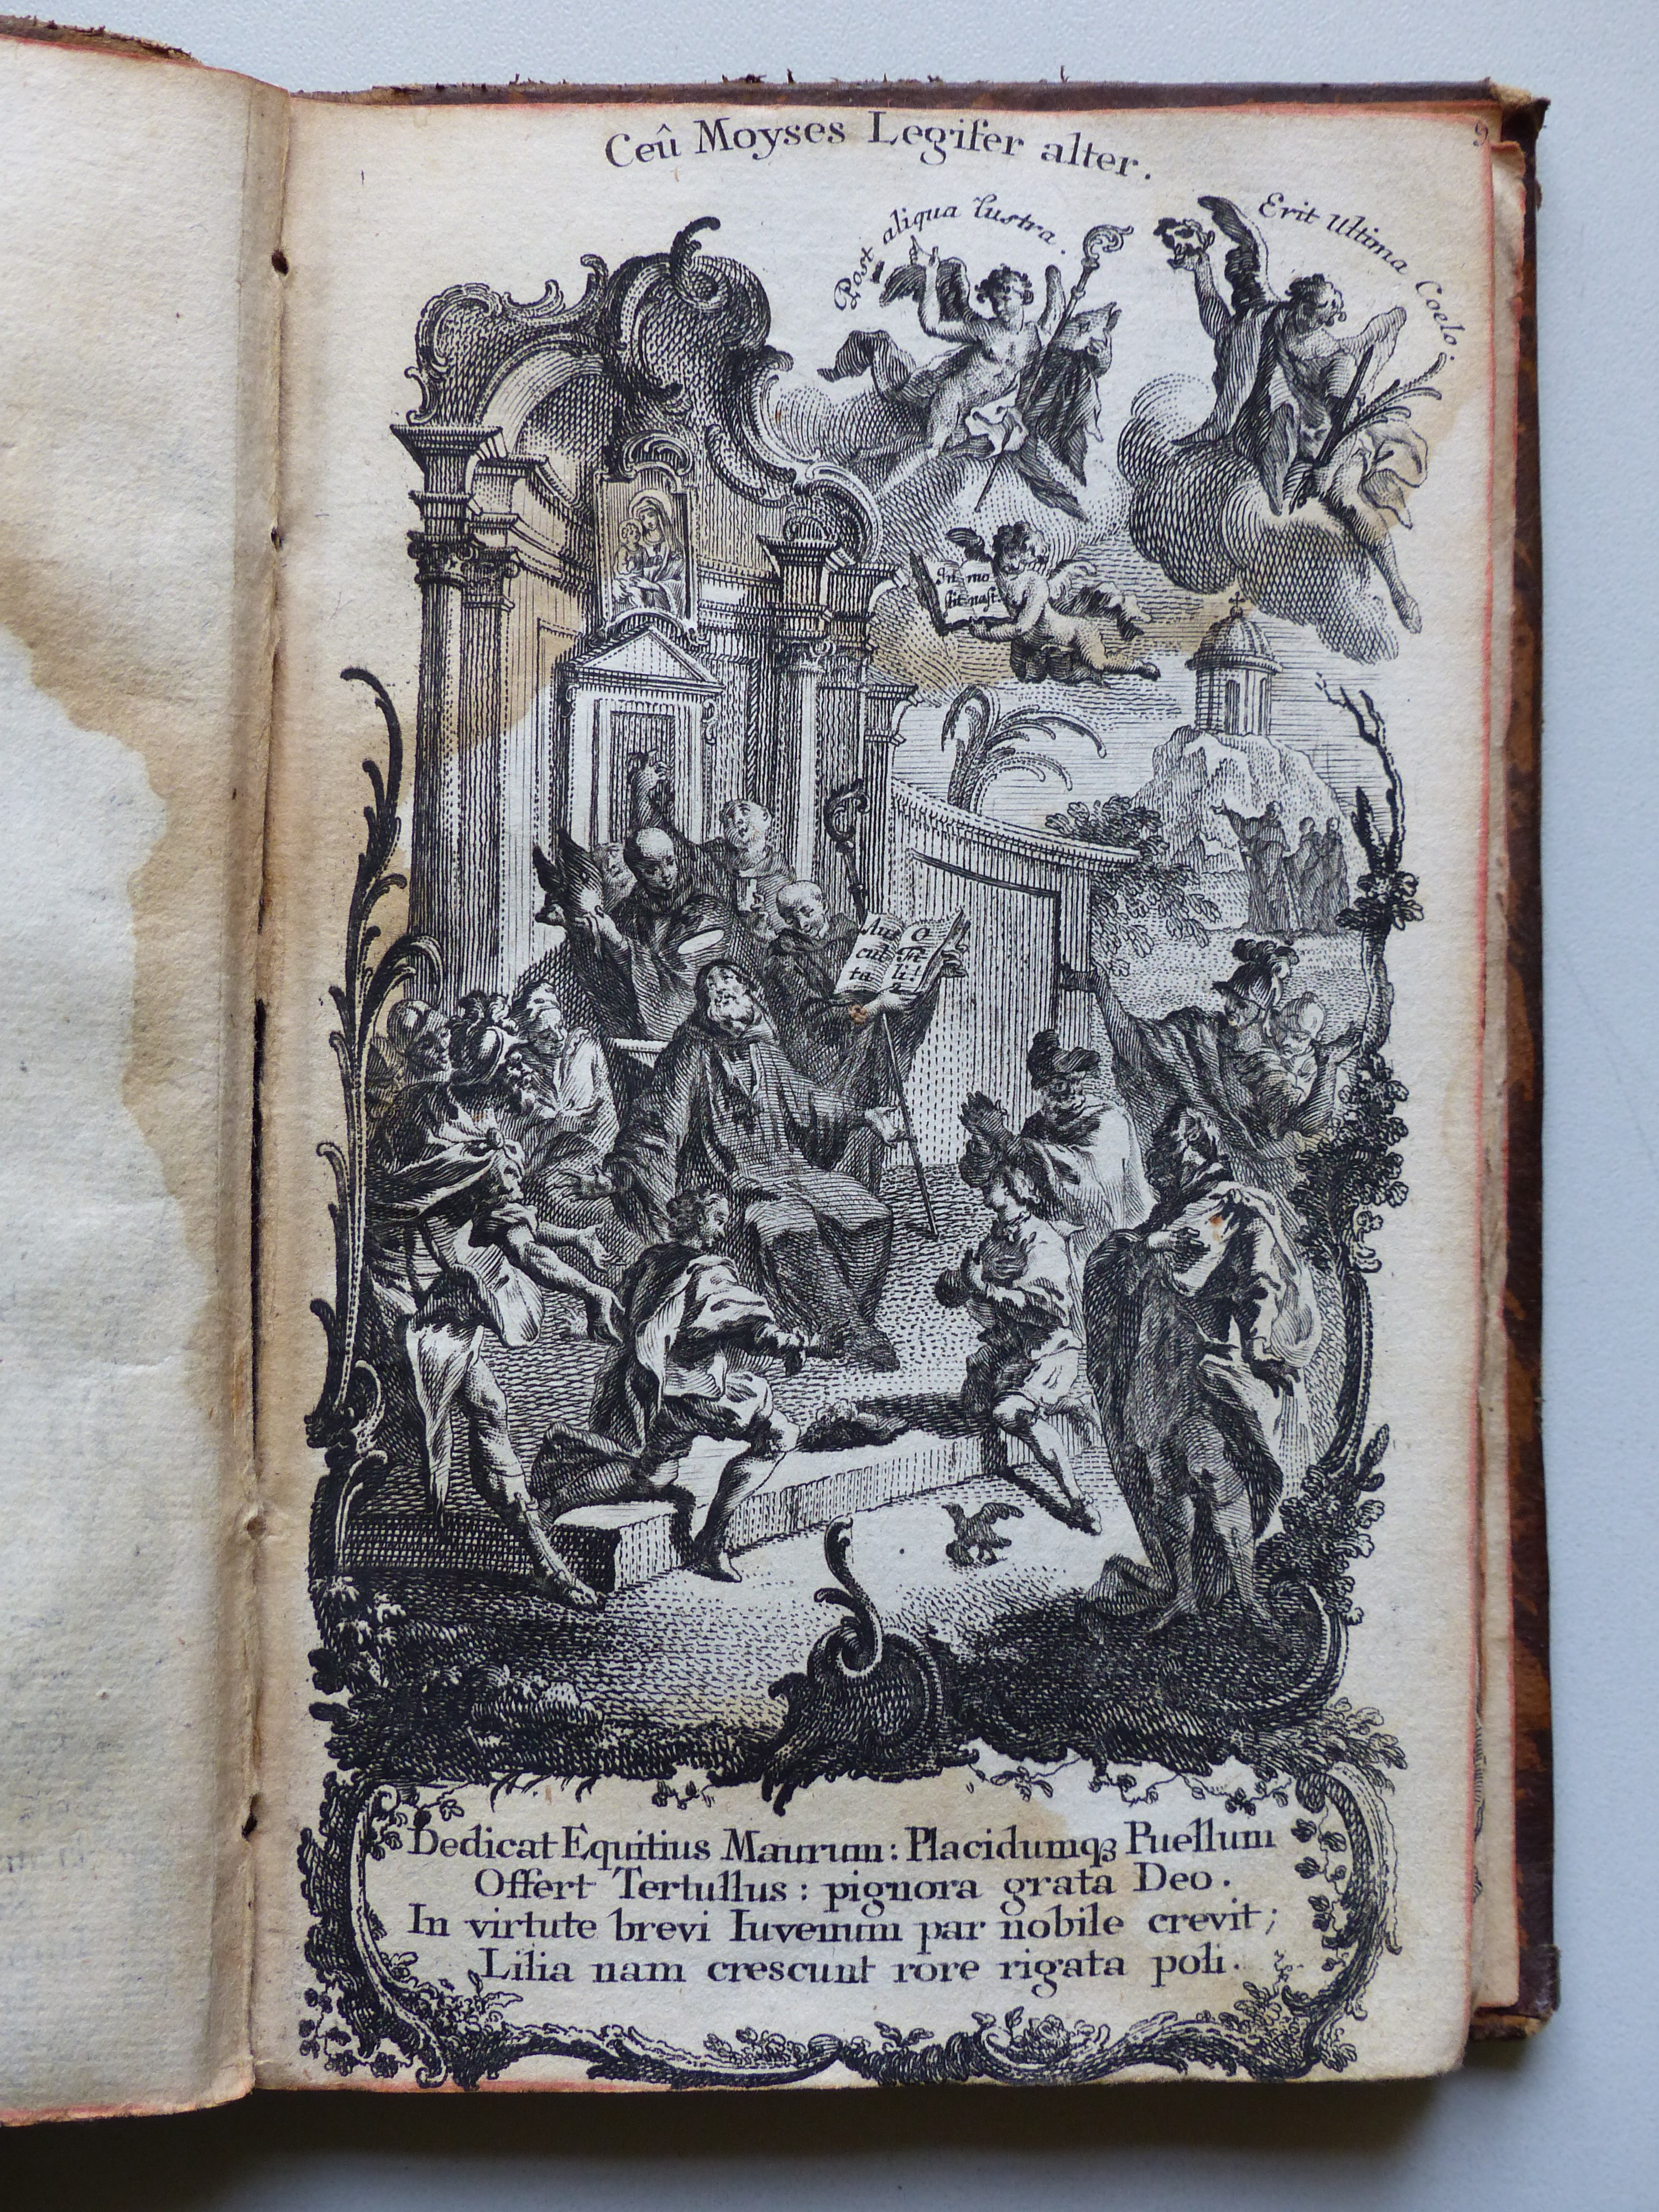 9
Ceû Moyses Legifer alter.
Post aliqua lustra.
Erit Ultima Coelo.
Aus O
cul Fi
ta li!
Dedicat Equitius Maurum: Placidumqꝫ Puellum
Offert Tertullus: pignora grata Deo.
In virtute brevi Iuvenum par nobile crevit;
Lilia nam crescunt rore rigata poli.